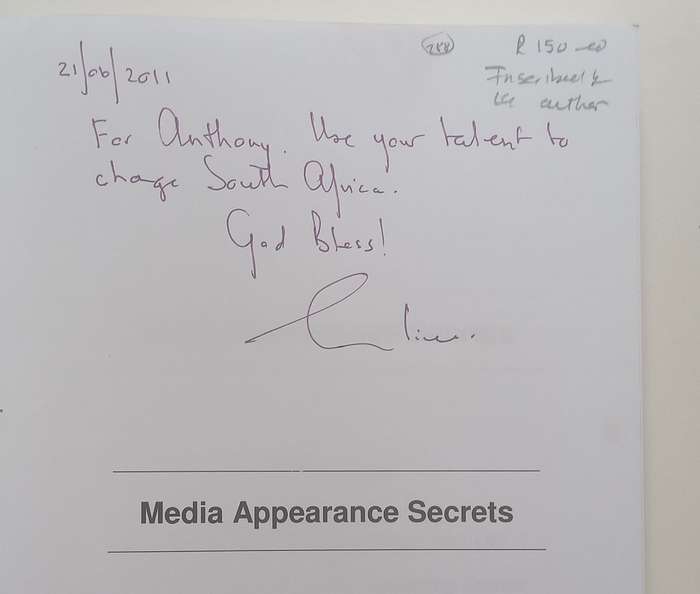 R 150-00
Inscribed by
the author
21/06/2011
For Anthony. Use your talent to
change South Africa.
God Bless!
Clive.
Media Appearance Secrets